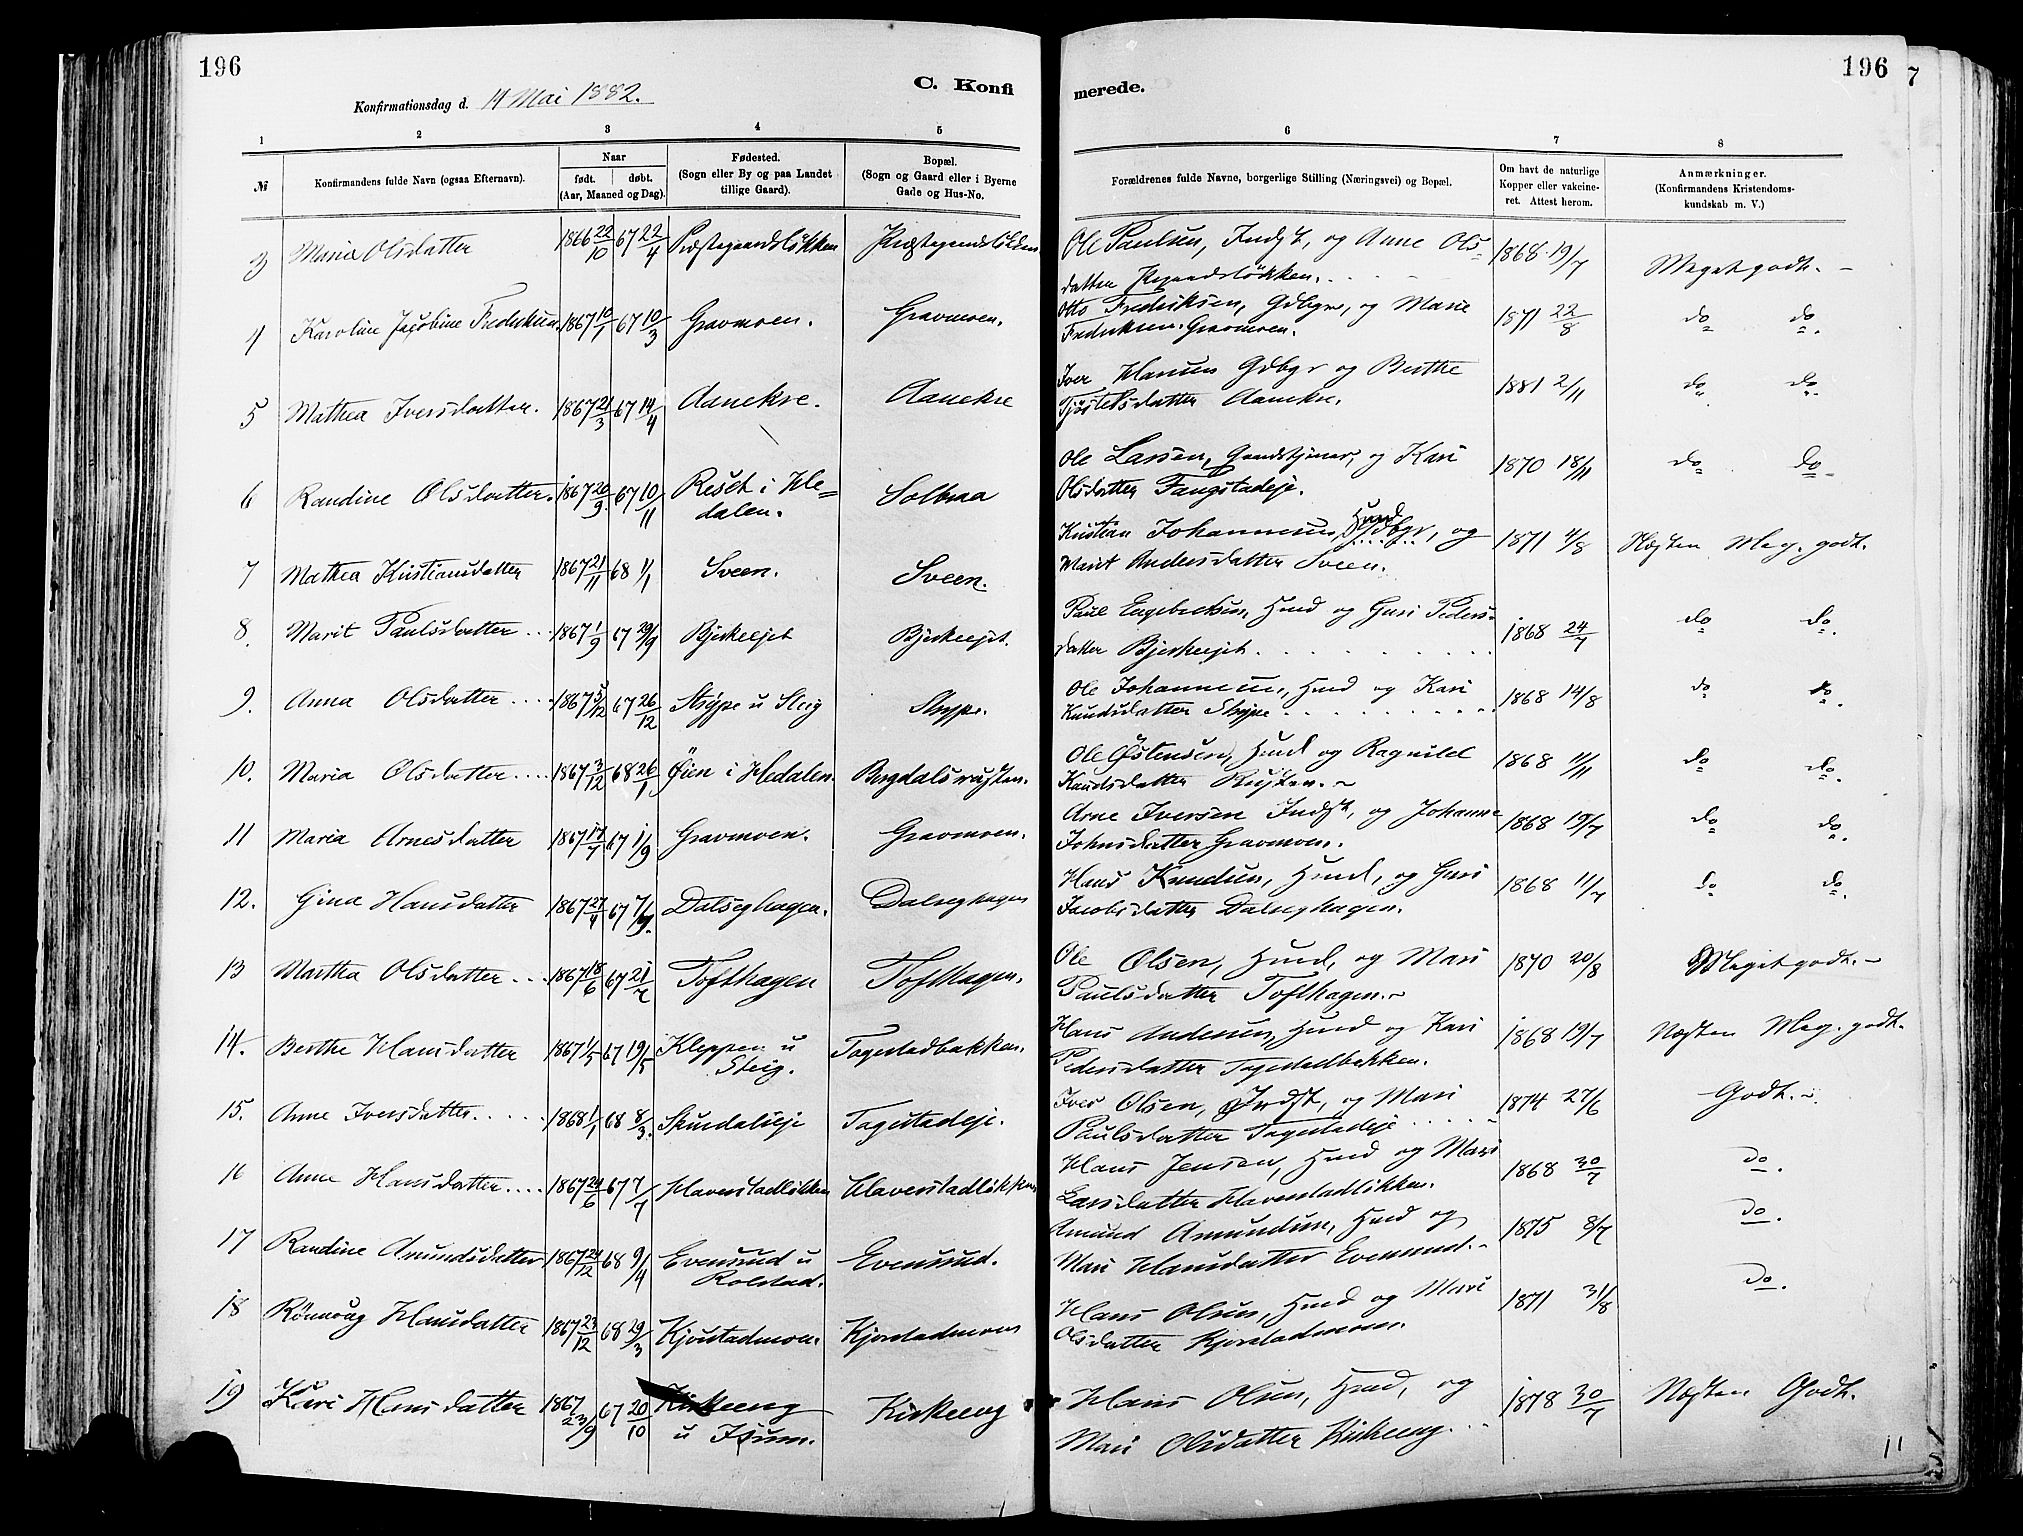 196
196
7
C. Konfi
merede.
Konfirmationsdag d. 14 Mai 1882.
1 2 3 4 5 6 7 8
№
Konfirmandens fulde Navn (ogsaa Efternavn).
Naar
født. døbt.
(Aar, Maaned og Dag).
Fødested.
(Sogn eller By og paa Landet
tillige Gaard).
Bopæl.
(Sogn og Gaard eller i Byerne
Gade og Hus-No.
Forældrenes fulde Navne, borgerlige Stilling (Næringsvei) og Bopæl.
Om havt de naturlige
Kopper eller vakcine-
ret. Attest herom.
Anmærkninger.
(Konfirmandens Kristendoms-
kundskab m. V.)
3 Maria Olsdatter 1866 22/10 67 22/4 Præstegaardsløkken Præstegaardsløkken Ole Paulsen, Indst, og Anne Ols- 1868 19/7 Meget godt. -
datter Prgaardsløkken.
4 Karoline Jacobine Frederiksen 1867 10/1 67 10/3 Gravmoen. Gravmoen. Otto Fredriksen, Gdbgr, og Marie 1871 22/8 do do.
Frederiksen Gravmoen.
5 Mathea Iversdatter. 1867 21/3 67 14/4 Aanekre. Aanekre Iver Hansen Gdbgr og Berthe 1881 2/11 do do.
Tjøstelsdatter Aanekre.
6 Randine Olsdatter. 1867 20/9 67 10/11 Reset i He= Solbraa Ole Larsen, Gaardstjener, og Kari 1870 18/11 do do
dalen. Olsdatter Fangstadeje.
7 Mathea Kristiansdatter 1867 21/11 68 1/1 Sveen. Sveen. Kristian Johannesen, Husd Gdbgr, og 1871 4/8 Næsten Meg. godt.
Marit Andersdatter Sveen.
8. Marit Paulsdatter 1867 1/9 67 29/9 Bjerkeejet Bjerkeejet. Paul Engebretsen, Husd og Guri Peders- 1868 24/7 do do.
datter Bjerkeejet.
9. Anna Olsdatter 1867 5/12 67 26/12 Strype u Steig Strype. Ole Johannesen, Husd og Kari 1868 14/8 do do.
Knudsdatter Strype
10. Maria Olsdatter 1867 3/12 68 26/1 Øien i Hedalen. Bergdalsrusten. Ole Østensen, Husd og Ragnild 1868 11/11 do do.
Knudsdatter Rusten.
11 Maria Arnesdatter 1867 17/7 67 1/9 Gravmoen. Gravmoen. Arne Iversen Indst, og Johanne 1868 19/7 do do.
Johnsdatter Gravmoen.
12. Gina Hansdatter 1867 27/4 67 7/9. Dalseghagen. Dalseghagen Hans Knudsen, Husd, og Guri 1868 11/7 do do.
Jacobsdatter Dalseghagen.
13 Martha Olsdatter 1867 18/6 67 21/7 Tofthagen Tofthagen. Ole Olsen, Husd, og Mari 1870 20/8 Meget godt. -
Paulsdatter Tofthagen.
14. Berthe Hansdatter 1867 1/5 67 19/5 Kleppen u Tagestadbakken. Hans Andersen, Husd og Kari 1868 19/7 Næsten Meg. godt.
Steig. Pedersdatter Tagestadbakken.
15. Anne Iversdatter 1868 1/1 68 8/3. Skurdalseje Tagestadeje. Iver Olsen, Indst, og Mari 1874 27/6 Godt.
Paulsdatter Tagestadeje
16 Anne Hansdatter 1867 24/6 67 7/7 Haverstadløkken Haverstadløkken Hans Jensen, Husd og Mari 1868 30/7 do.
Larsdatter Haverstadløkken.
17 Randine Amundsdatter 1867 24/12 68 9/4 Evensrud u Evensrud. Amund Amundsen, Husd og 1875 8/7 do.
Rolstad. Mari Hansdatter Evensrud.
18 Rønnoug Hansdatter 1867 23/12 68 29/3 Kjorstadmoen Kjorstadmoen Hans Olsen, Husd og Mari 1871 31/8 do.
Olsdatter Kjorstadmoen.
19 Kari Hansdatter 1867 23/9 67 20/10 Kirkeeng Kirkeeng Hans Olsen, Husd, og 1878 30/7 Næsten Godt.
u Isum. Mari Olsdatter Kirkeeng.
11